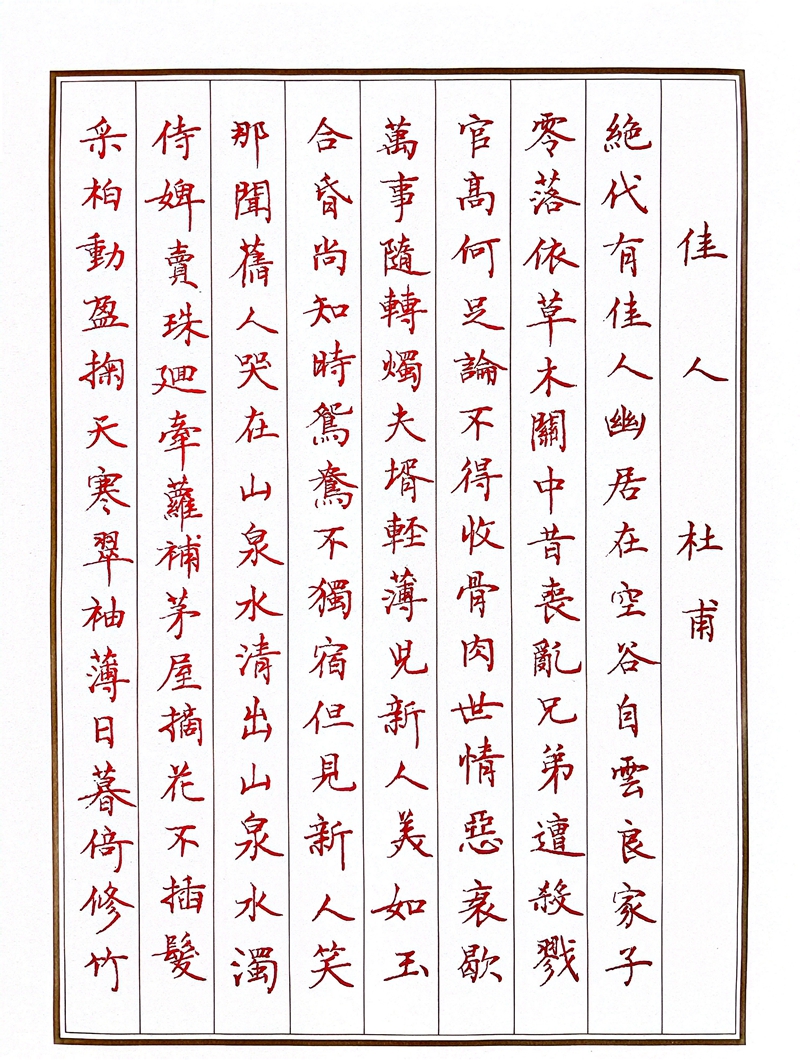 佳人 杜甫
絶代有佳人幽居在空谷自雲良家子
零落依草木關中昔喪亂兄弟遭殺戮
官高何足論不得收骨肉世情惡衰歇
萬事隨轉燭夫壻輕薄児新人美如玉
合昏尚知時鴛鴦不獨宿但見新人笑
那聞舊人哭在山泉水清出山泉水濁
侍婢賣珠廻牽蘿補茅屋摘花不插髮
采柏動盈掬天寒翠袖薄日暮倚修竹